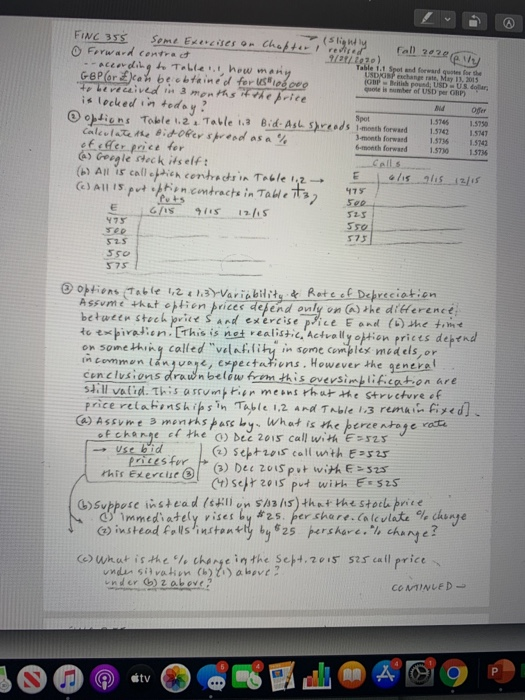 FINC 355 Some Exercises on Chapter 1 (slightly revised 9/29/2020) Fall 2020 p 1/2
① Forward contract
--according to Table 1.1 how many
GBP (or £) can be obtained for US$100,000
to be received in 3 months if the price
is locked in today?
Table 1.1 Spot and forward quotes for the
USD/GBP exchange rate, May 13, 2015
(GBP = British pound; USD = U.S. dollar;
quote is number of USD per GBP)
Bid Offer
Spot 1.5746 1.5750
1-month forward 1.5742 1.5747
3-month forward 1.5736 1.5742
6-month forward 1.5730 1.5736
② options Table 1.2 & Table 1.3 Bid-Ask Spreads
Calculate the Bid Offer spread as a %
of offer price for
(a) Google stock itself:
(b) All 15 call option contracts in Table 1.2 →
(c) All 15 put option contracts in Table 1.3
Calls
E 6/15 9/15 12/15
475
500
525
550
575
Puts
E 6/15 9/15 12/15
475
500
525
550
575
③ options (Table 1.2 & 1.3) - Variability & Rate of Depreciation
Assume that option prices depend only on (a) the difference
between stock price S and exercise price E and (b) the time
to expiration. [This is not realistic. Actually option prices depend
on something called "volatility" in some complex models, or
in common language, expectations. However the general
conclusions drawn below from this oversimplification are
still valid. This assumption means that the structure of
price relationships in Table 1.2 and Table 1.3 remain fixed].
(a) Assume 3 months pass by. What is the percentage rate
of change of the (1) Dec 2015 call with E=525
→ Use bid prices for this Exercise ③
(2) Sept 2015 call with E=525
(3) Dec 2015 put with E=525
(4) Sept 2015 put with E=525
(b) Suppose instead (still on 5/13/15) that the stock price
(1) immediately rises by $25. per share. Calculate % change
(2) instead falls instantly by $25 per share. % change?
(c) What is the % change in the Sept. 2015 525 call price
under situation (b)(1) above?
under (b) 2 above?
CONTINUED →
tv